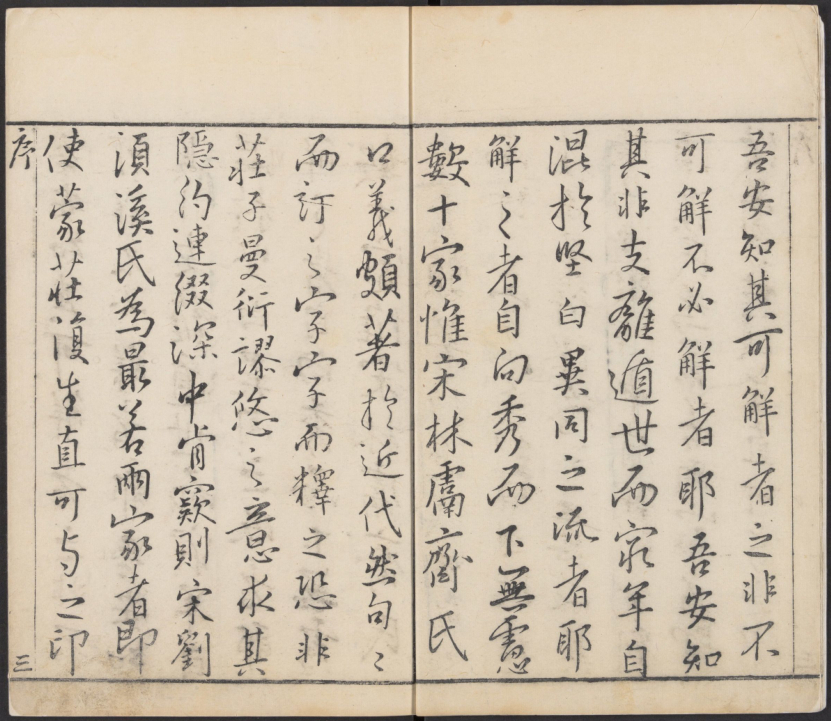 吾安知其可解者之非不
可解不必解者耶吾安知
其非支離遁世而窮年自
混於堅白異同之流者耶
解之者自向秀而下無慮
數十家惟宋林鬳齋氏
口義頗著於近代然句〻
而訂之字字而釋之恐非
莊子曼衍謬悠之意求其
隱約連綴深中肯窾則宋劉
須溪氏為最若兩家者即
使蒙莊復生直可与之印
序
三